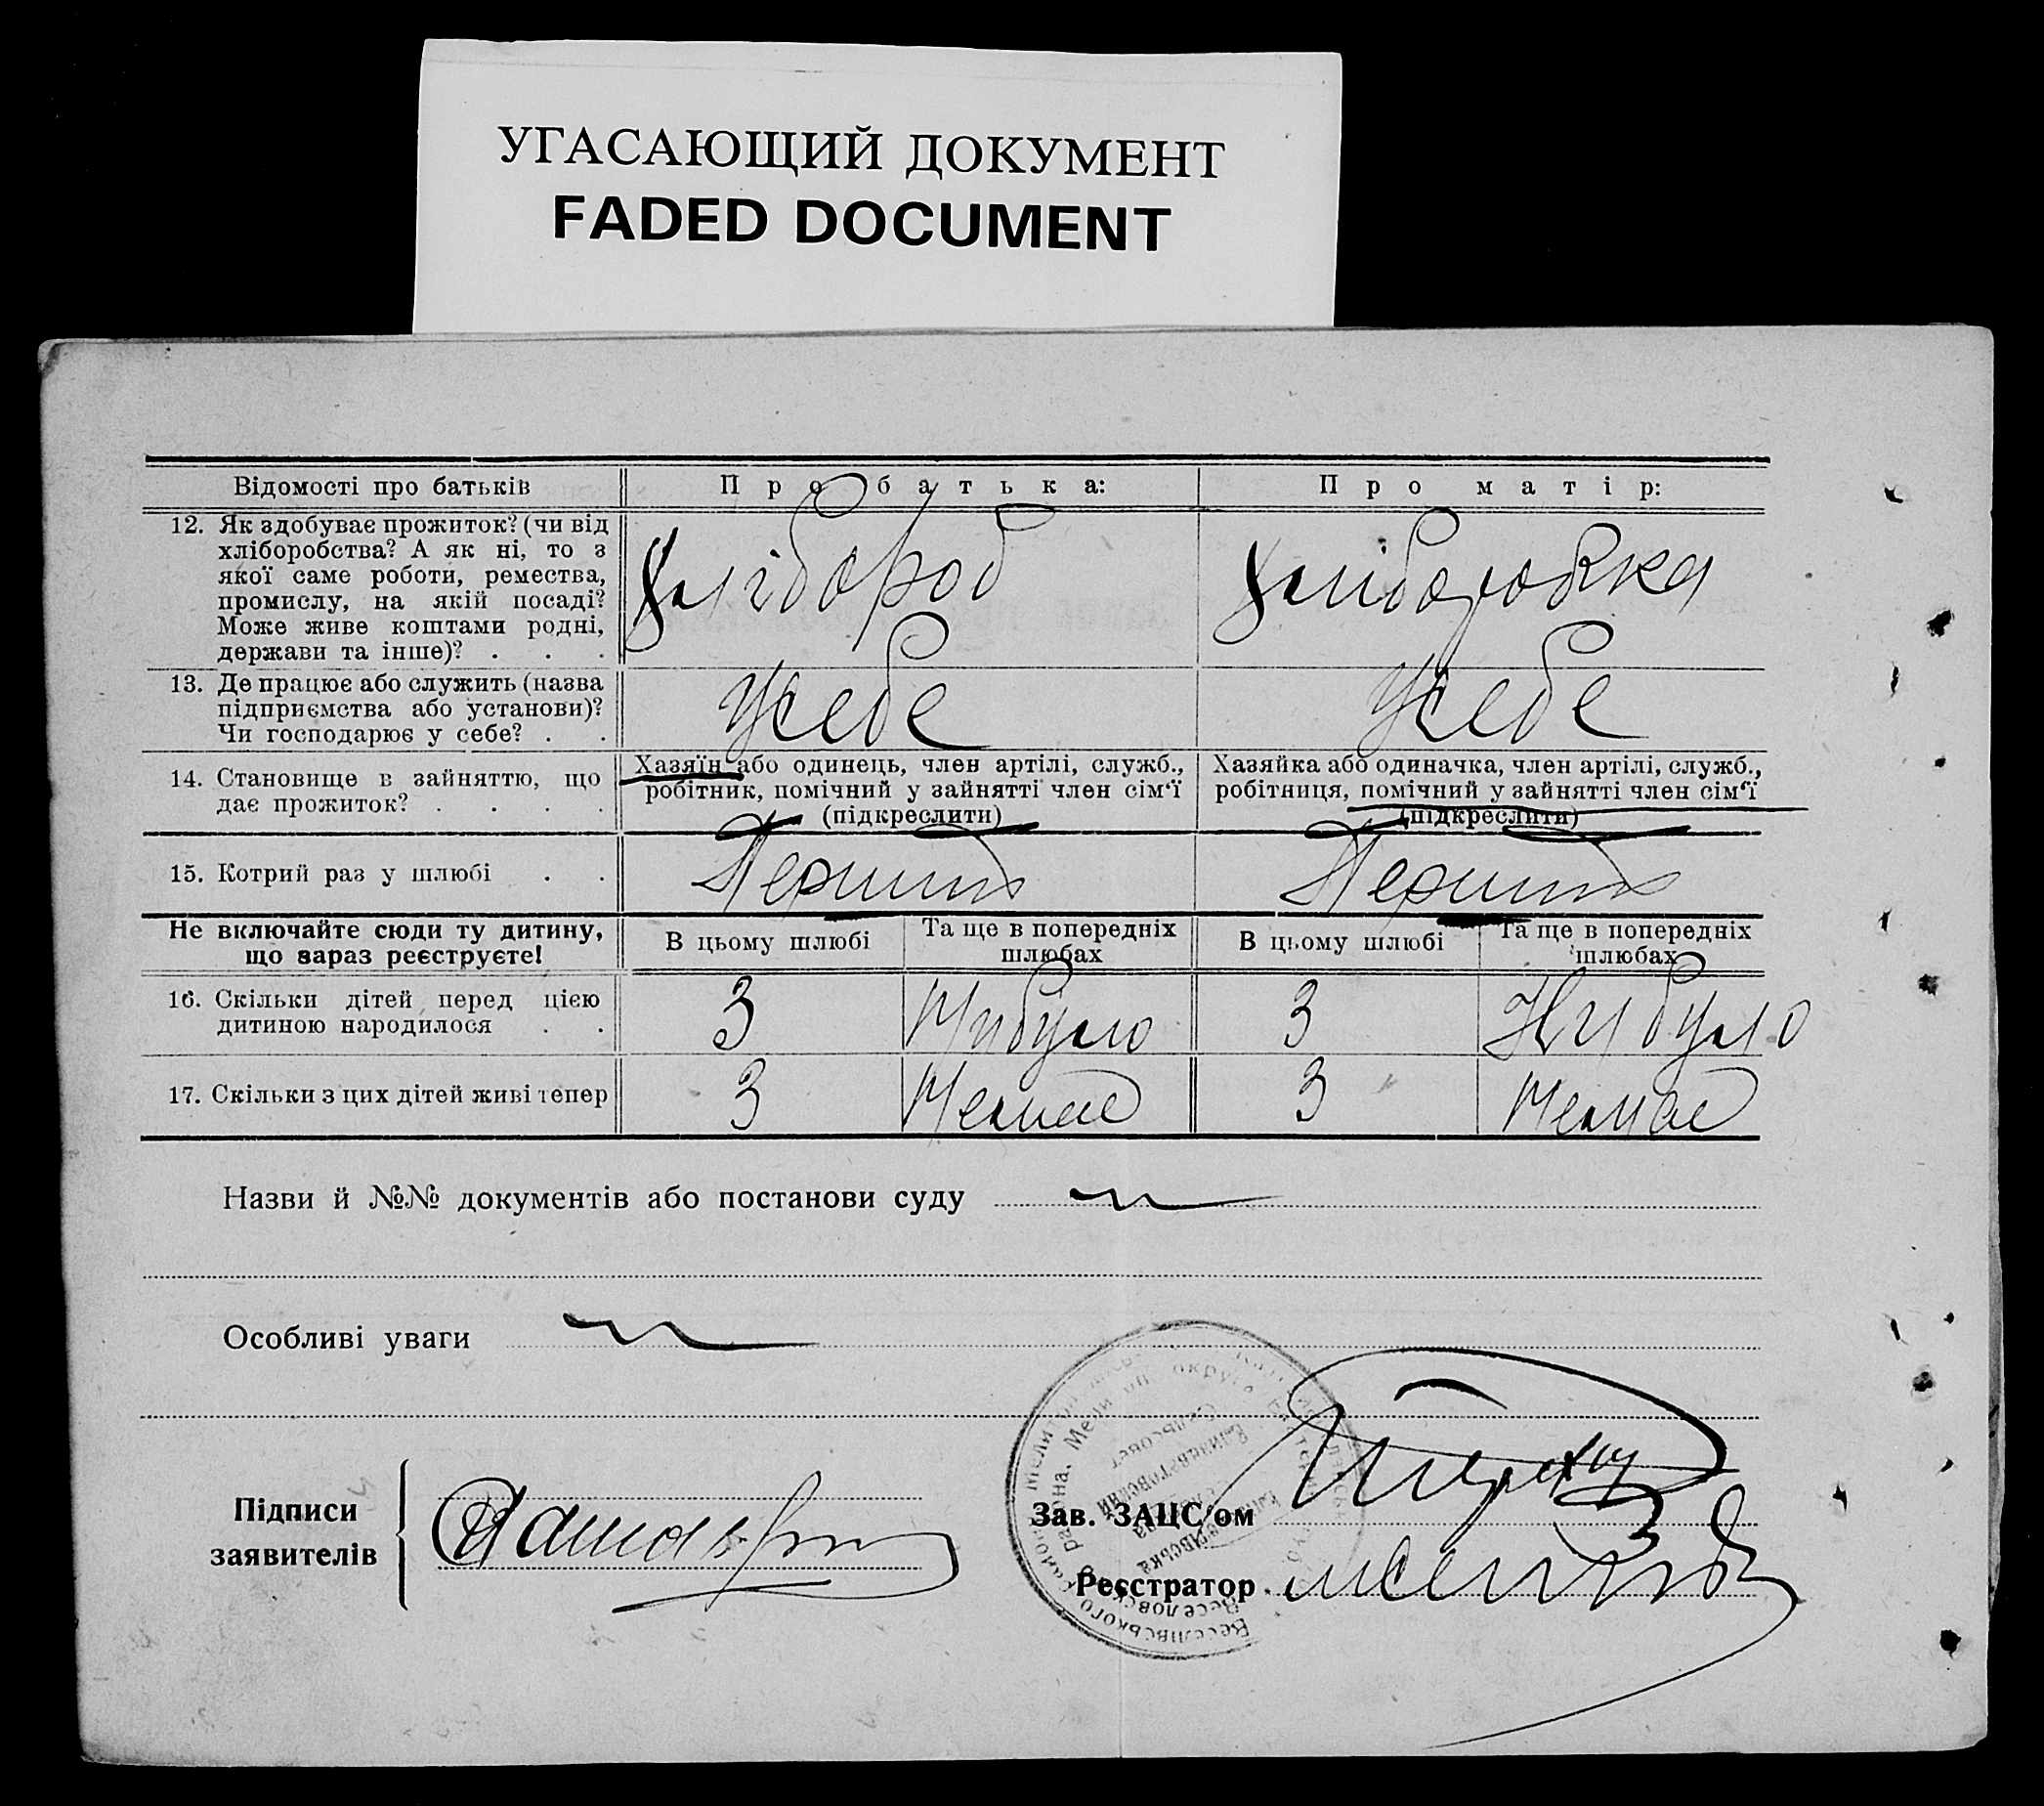 УГАСАЮЩИЙ ДОКУМЕНТ
FADED DOCUMENT
Відомості про батьків
Про батька:
Про матір:
12. Як здобуває прожиток? (чи від
хліборобства? А як ні, то з
якої саме роботи, ремества,
промислу, на якій посаді?
Може живе коштами родні,
держави та інше)? . . .
Хлібороб
Хліборобка
13. Де працює або служить (назва
підприємства або установи)?
Чи господарює у себе? . .
Усебе
Усебе
14. Становище в зайняттю, що
дає прожиток? . . . .
Хазяїн або одинець, член артілі, служб.,
робітник, помічний у зайнятті член сім'ї
(підкреслити)
Хазяйка або одиначка, член артілі, служб.,
робітниця, помічний у зайнятті член сім'ї
(підкреслити)
15. Котрий раз у шлюбі . .
Перший
Перший
Не включайте сюди ту дитину,
що зараз реєструєте!
В цьому шлюбі
Та ще в попередніх
шлюбах
В цьому шлюбі
Та ще в попередніх
шлюбах
16. Скільки дітей перед цією
дитиною народилося . .
3
Нибуло
3
Нибуло
17. Скільки з цих дітей живі тепер
3
Немає
3
Немає
Назви й №№ документів або постанови суду
Особливі уваги
Підписи
заявителів
Зав. ЗАЦС'ом
Реєстратор
Веселівського
Веселовского
района, Мелитоп. округа
Елизаветовский
Сельсовет